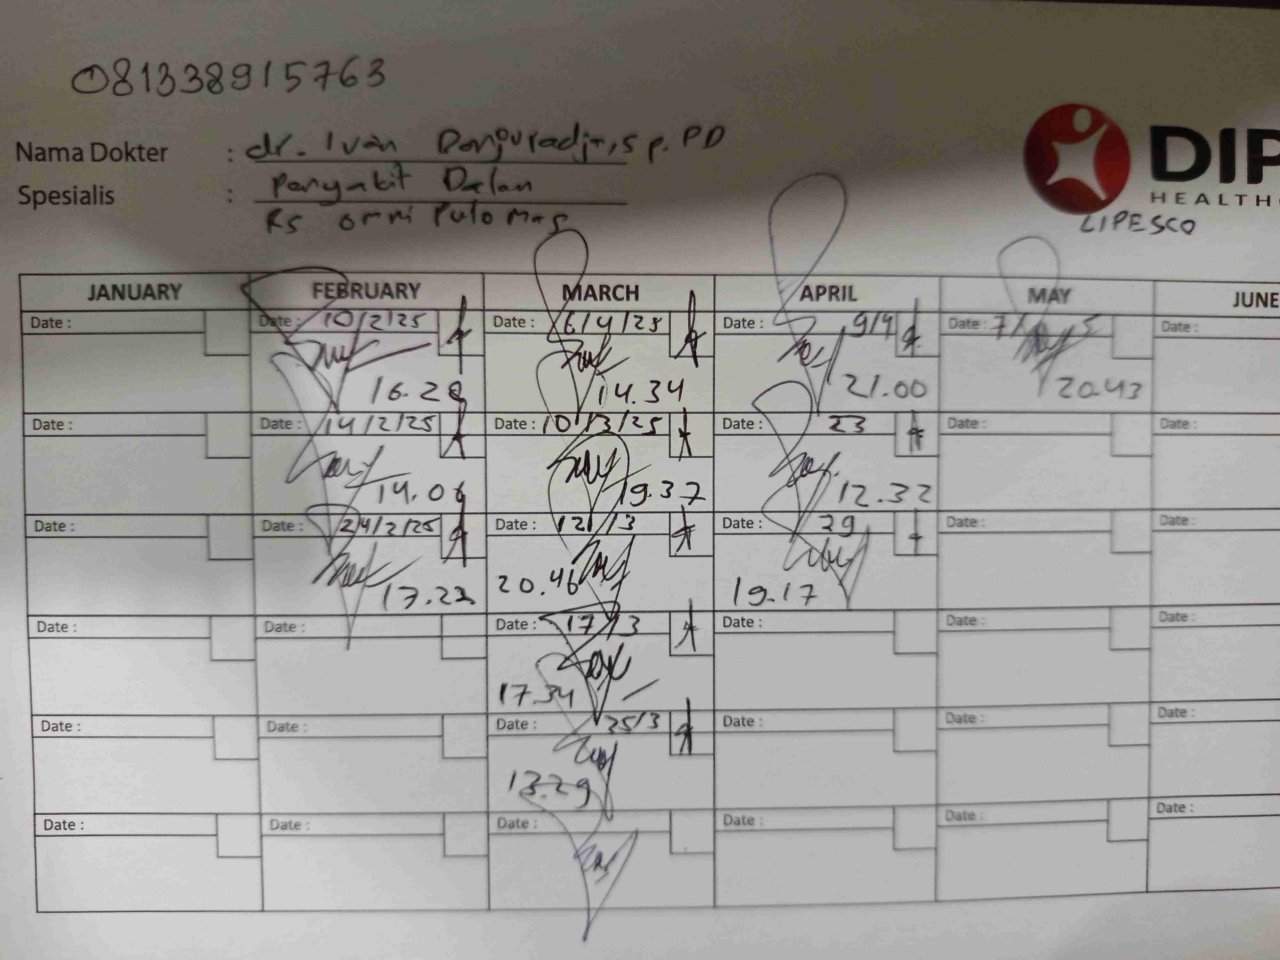 081338915763
Nama Dokter : dr. Ivan Danjuradja, Sp. PD
Spesialis : Penyakit Dalam
RS omni Pulo Mas
DIP
HEALTH
LIPESCO
JANUARY FEBRUARY MARCH APRIL MAY JUNE
Date : Date : 10/2/25 Date : 6/4/25 Date : 9/4 Date : 7/ Date :
16.28 14.34 21.00 20.43
Date : Date : 14/2/25 Date : 10/3/25 Date : 23 Date : Date :
14.06 19.37 12.32
Date : Date : 24/2/25 Date : 12/3 Date : 29 Date : Date :
17.22 20.46 19.17
Date : Date : Date : 17/3 Date : Date : Date :
17.34
Date : Date : Date : 25/3 Date : Date : Date :
13.29
Date : Date : Date : Date : Date : Date :